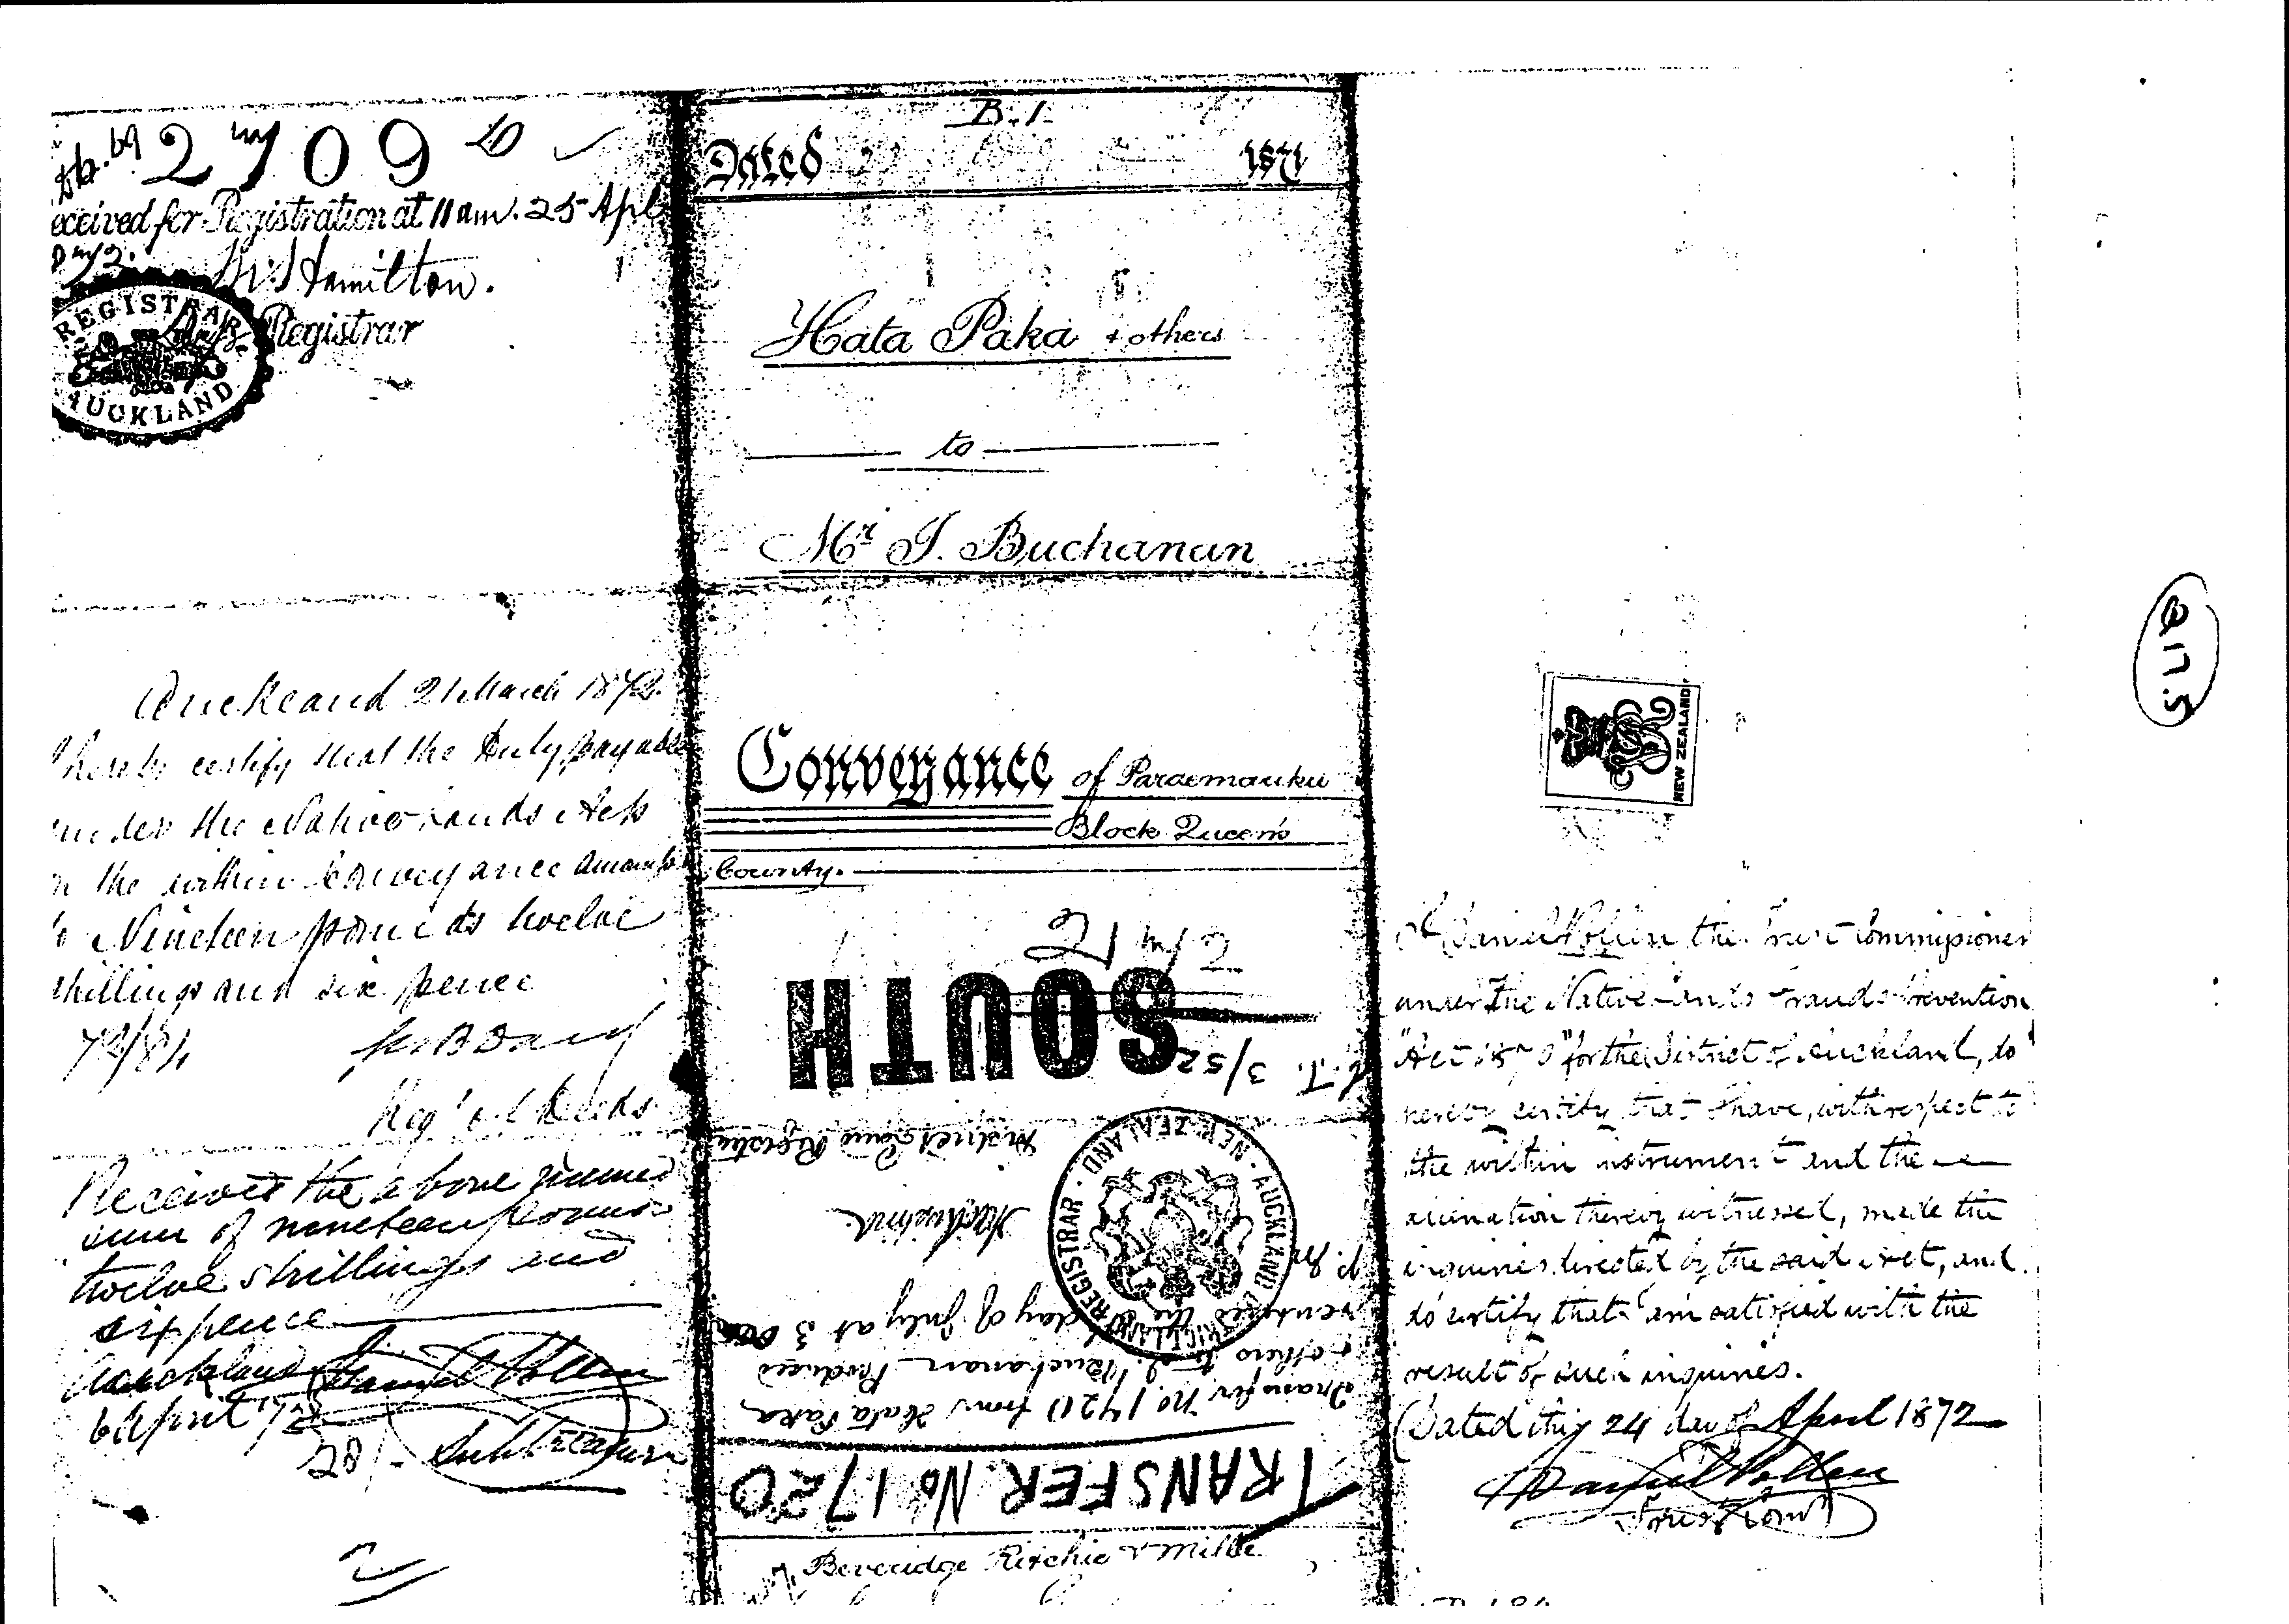 2709
eceived for Registration at 11 am. 25 Apl
Hamilton.
Registrar
REGISTRAR
AUCKLAND
Auckland 21 March 1872
I hereby certify that the Duty payable
under the Native Lands Acts
n the within Conveyance amounts
to Nineteen pounds twelve
shillings and six pence
Reg. of Deeds
Received the above named
sum of nineteen pounds
twelve shillings and
sixpence
Auckland Daniel Pollen
6 April
28/-
Sub Treasurer
2
B. 1.
Dated 187
Hata Paka + others
to
Mr J. Buchanan
Conveyance of Paraemauku
Block Queen's
County.
2172
SOUTH
3/52
TRANSFER No 1720
Transfer No. 1720 from Hata Paka
+ others to J. Buchanan Produced
day of July at 3
District Land Registrar
DISTRICT LAND REGISTRAR · AUCKLAND · NEW ZEALAND
Beveridge Ritchie & Mill
NEW ZEALAND
I Daniel Pollen the Trust Commissioner
under the Native Lands Frauds Prevention
"Act 1870" for the District of Auckland, do
hereby certify that I have, with respect to
the within instrument and the
alienation thereby witnessed, made the
inquiries directed by the said Act, and
do certify that I am satisfied with the
result of such inquiries.
Dated this 24 day of April 1872
Daniel Pollen
Trust Com
B17.5